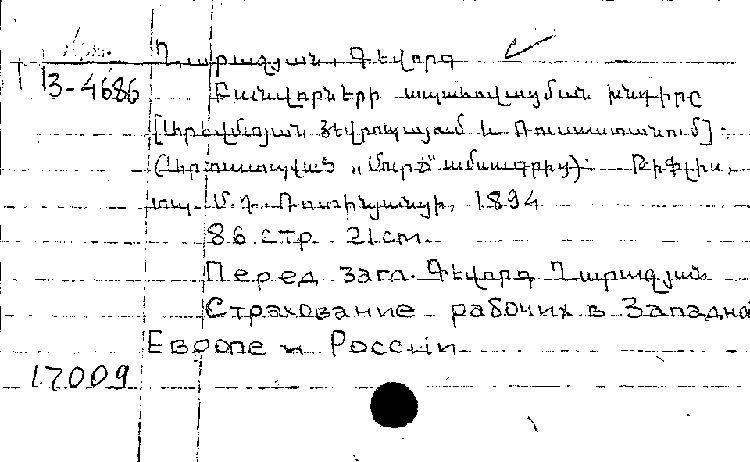 Ղարաջյան, Գեվորգ
3-4686
Բանվորների ապահովացման խնդիրը
[Արևմտյան Եվրոպայում և Ռուսաստանում]:
(Արտատպված „Մուրճ" ամսագրից): Թիֆլիս,
տպ. Մ. Դ. Ռոտինյանցի, 1894
86 стр. 21 cm.
Перед загл. Գեվորգ Ղարաջյան
Страхование рабочих в Западно
Европе и России
17009